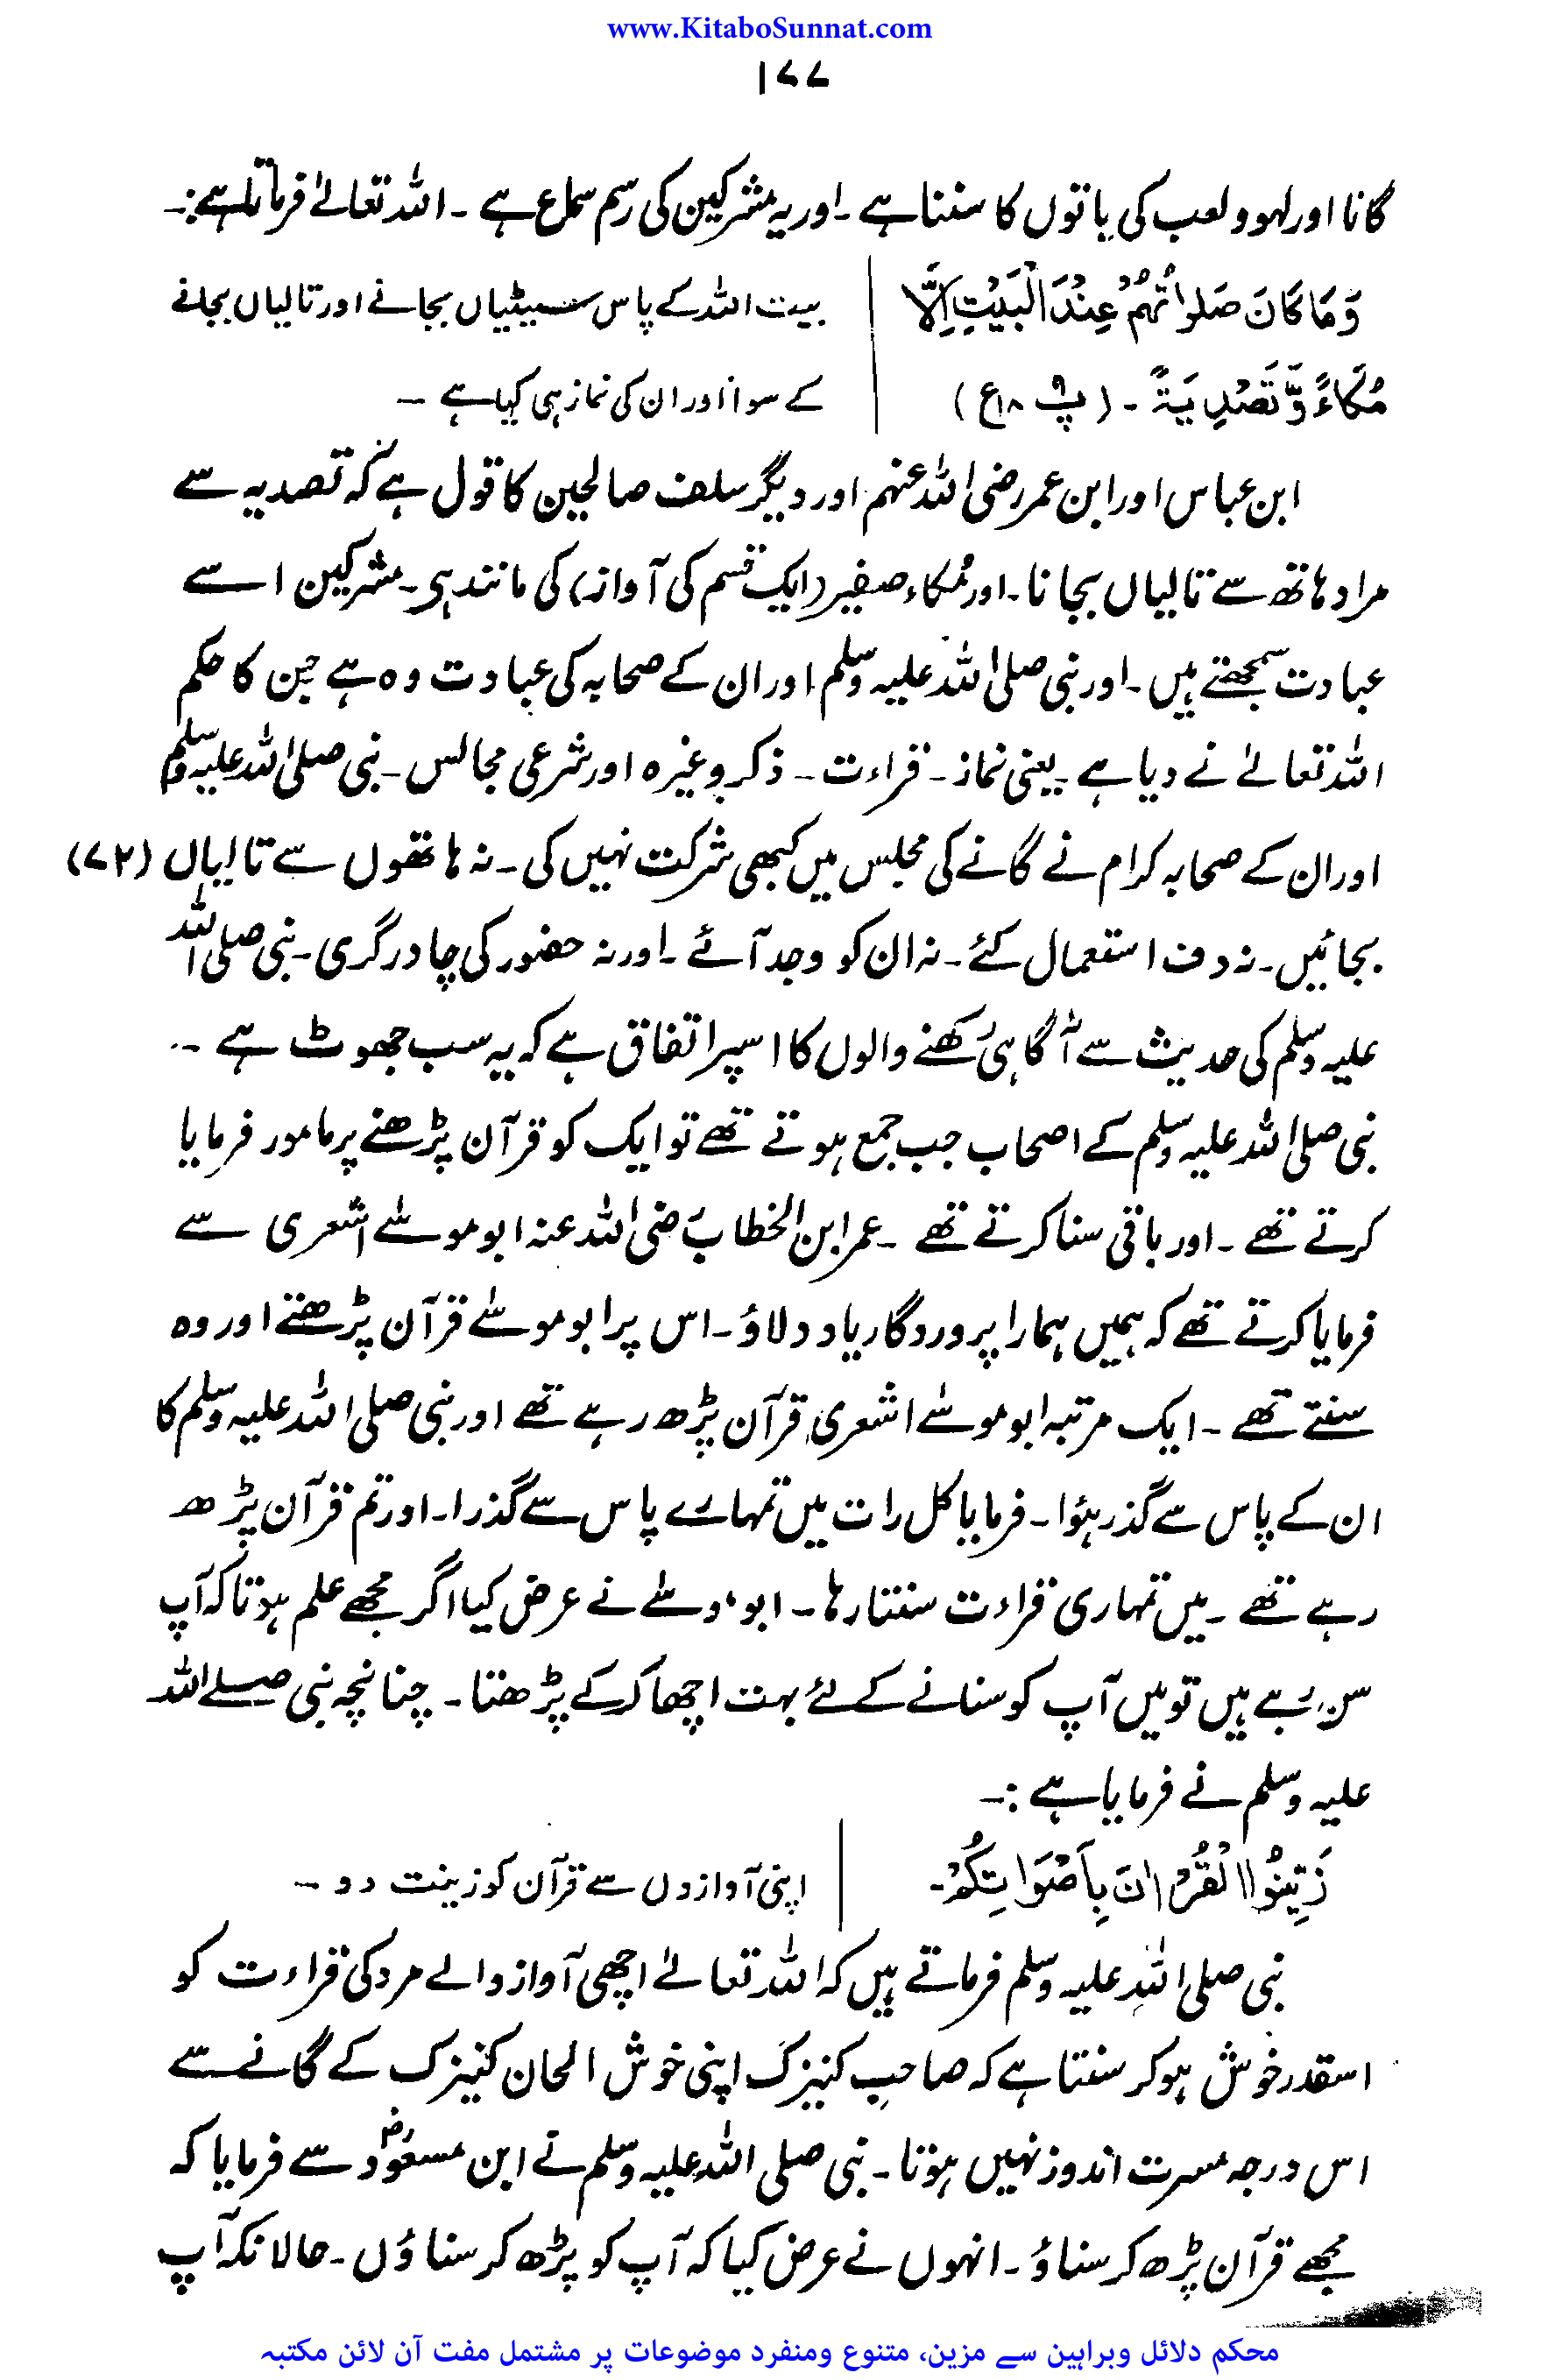 www.KitaboSunnat.com
۱۷۷
گانا اور لہو و لعب کی باتوں کا سننا ہے ۔ اور یہ مشرکین کی رسم سماع ہے ۔ اللہ تعالےٰ فرماتا ہے :۔
وَمَا كَانَ صَلٰوتُهُمْ عِنْدَ الْبَيْتِ اِلَّا
بیت اللہ کے پاس سیٹیاں بجانے اور تالیاں بجانے
مُكَاءً وَّتَصْدِيَةً ۔ (پ ۹ ع ۱۸)
کے سوا اور ان کی نماز ہی کیا ہے ۔
ابن عباس اور ابن عمر رضی اللہ عنہم اور دیگر سلف صالحین کا قول ہے کہ تصدیہ سے
مراد ہاتھ سے تالیاں بجانا ۔ اور مُکاء صفیر (ایک قسم کی آواز) کی مانند ہی ۔ مشرکین اسے
عبادت سمجھتے ہیں ۔ اور نبی صلی اللہ علیہ وسلم اور ان کے صحابہ کی عبادت وہ ہے جن کا حکم
اللہ تعالےٰ نے دیا ہے ۔ یعنی نماز ۔ قراءت ۔ ذکر وغیرہ اور شرعی مجالس ۔ نبی صلی اللہ علیہ وسلم
اور ان کے صحابہ کرام نے گانے کی مجلس میں کبھی شرکت نہیں کی ۔ نہ ہاتھوں سے تالیاں (۷۲)
بجائیں ۔ نہ دف استعمال کئے ۔ نہ ان کو وجد آئے ۔ اور نہ حضور کی چادر گری ۔ نبی صلی اللہ
علیہ وسلم کی حدیث سے آگاہی رکھنے والوں کا اسپر اتفاق ہے کہ یہ سب جھوٹ ہے ۔
نبی صلی اللہ علیہ وسلم کے اصحاب جب جمع ہوتے تھے تو ایک کو قرآن پڑھنے پر مامور فرمایا
کرتے تھے ۔ اور باقی سنا کرتے تھے ۔ عمر ابن الخطاب رضی اللہ عنہ ابو موسےٰ اشعری سے
فرمایا کرتے تھے کہ ہمیں ہمارا پروردگار یاد دلاؤ ۔ اس پر ابو موسےٰ قرآن پڑھتے اور وہ
سنتے تھے ۔ ایک مرتبہ ابو موسےٰ اشعری قرآن پڑھ رہے تھے اور نبی صلی اللہ علیہ وسلم کا
ان کے پاس سے گذر ہؤا ۔ فرمایا کل رات میں تمہارے پاس سے گذرا ۔ اور تم قرآن پڑھ
رہے تھے ۔ میں تمہاری قراءت سنتا رہا ۔ ابو موسےٰ نے عرض کیا اگر مجھے علم ہوتا کہ آپ
سن رہے ہیں تو میں آپ کو سنانے کے لئے بہت اچھا کر کے پڑھتا ۔ چنانچہ نبی صلے اللہ
علیہ وسلم نے فرمایا ہے :۔
زَيِّنُوا الْقُرْاٰنَ بِاَصْوَاتِكُمْ ۔
اپنی آوازوں سے قرآن کو زینت دو ۔
نبی صلی اللہ علیہ وسلم فرماتے ہیں کہ اللہ تعالےٰ اچھی آواز والے مرد کی قراءت کو
اسقدر خوش ہو کر سنتا ہے کہ صاحبِ کنیزک اپنی خوش الحان کنیزک کے گانے سے
اس درجہ مسرت اندوز نہیں ہوتا ۔ نبی صلی اللہ علیہ وسلم نے ابن مسعودؓ سے فرمایا کہ
مجھے قرآن پڑھ کر سناؤ ۔ انہوں نے عرض کیا کہ آپ کو پڑھ کر سناؤں ۔ حالانکہ آپ
محکم دلائل وبراہین سے مزین، متنوع ومنفرد موضوعات پر مشتمل مفت آن لائن مکتبہ